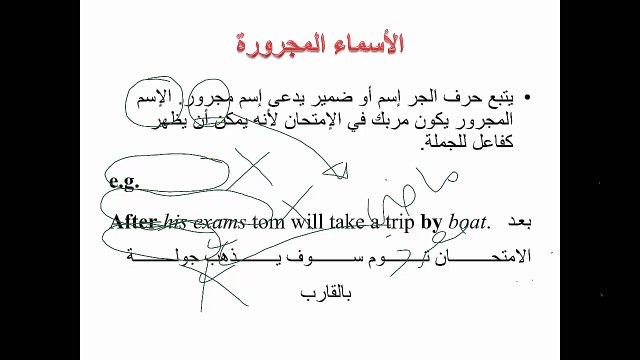 الأسماء المجرورة
• يتبع حرف الجر إسم أو ضمير يدعى إسم مجرور. الإسم
المجرور يكون مربك في الإمتحان لأنه يمكن أن يظهر
كفاعل للجملة.
e.g.
After his exams tom will take a trip by boat. بعد
الامتحان توم سوف يذهب جولة
بالقارب
ماضي